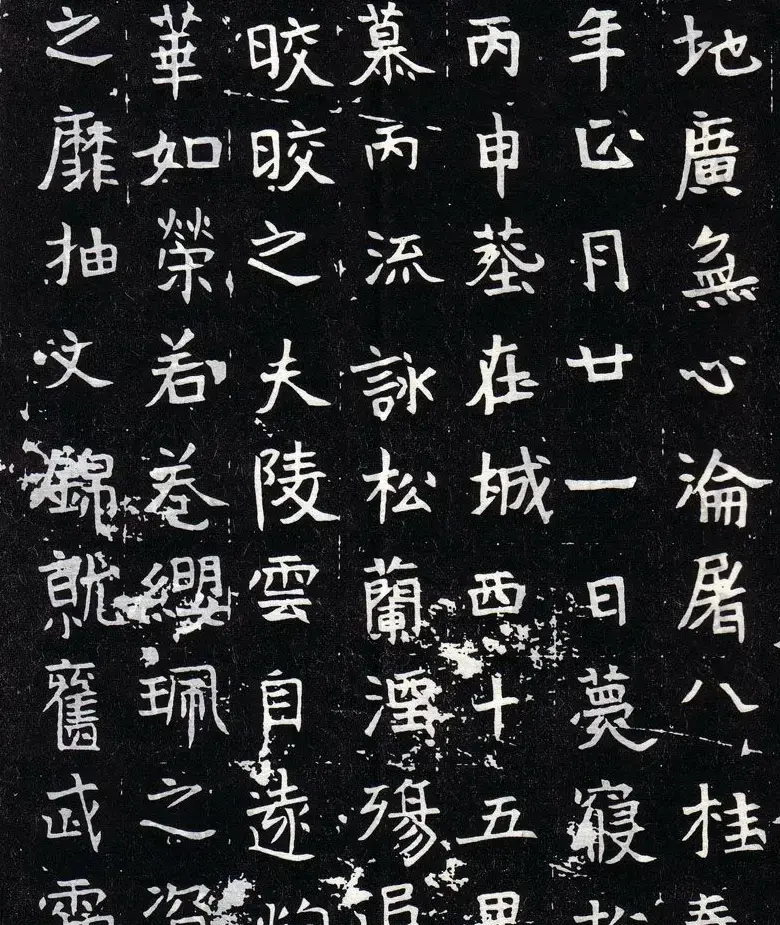 地廣無心淪屠八桂春
年正月廿一日薨寢於
丙申葬在城西十五里
慕丙流詠松蘭淫殤追
晈晈之夫陵雲自遠灼
華如榮若卷纓珮之姿
之靡抽文錦就舊武霜